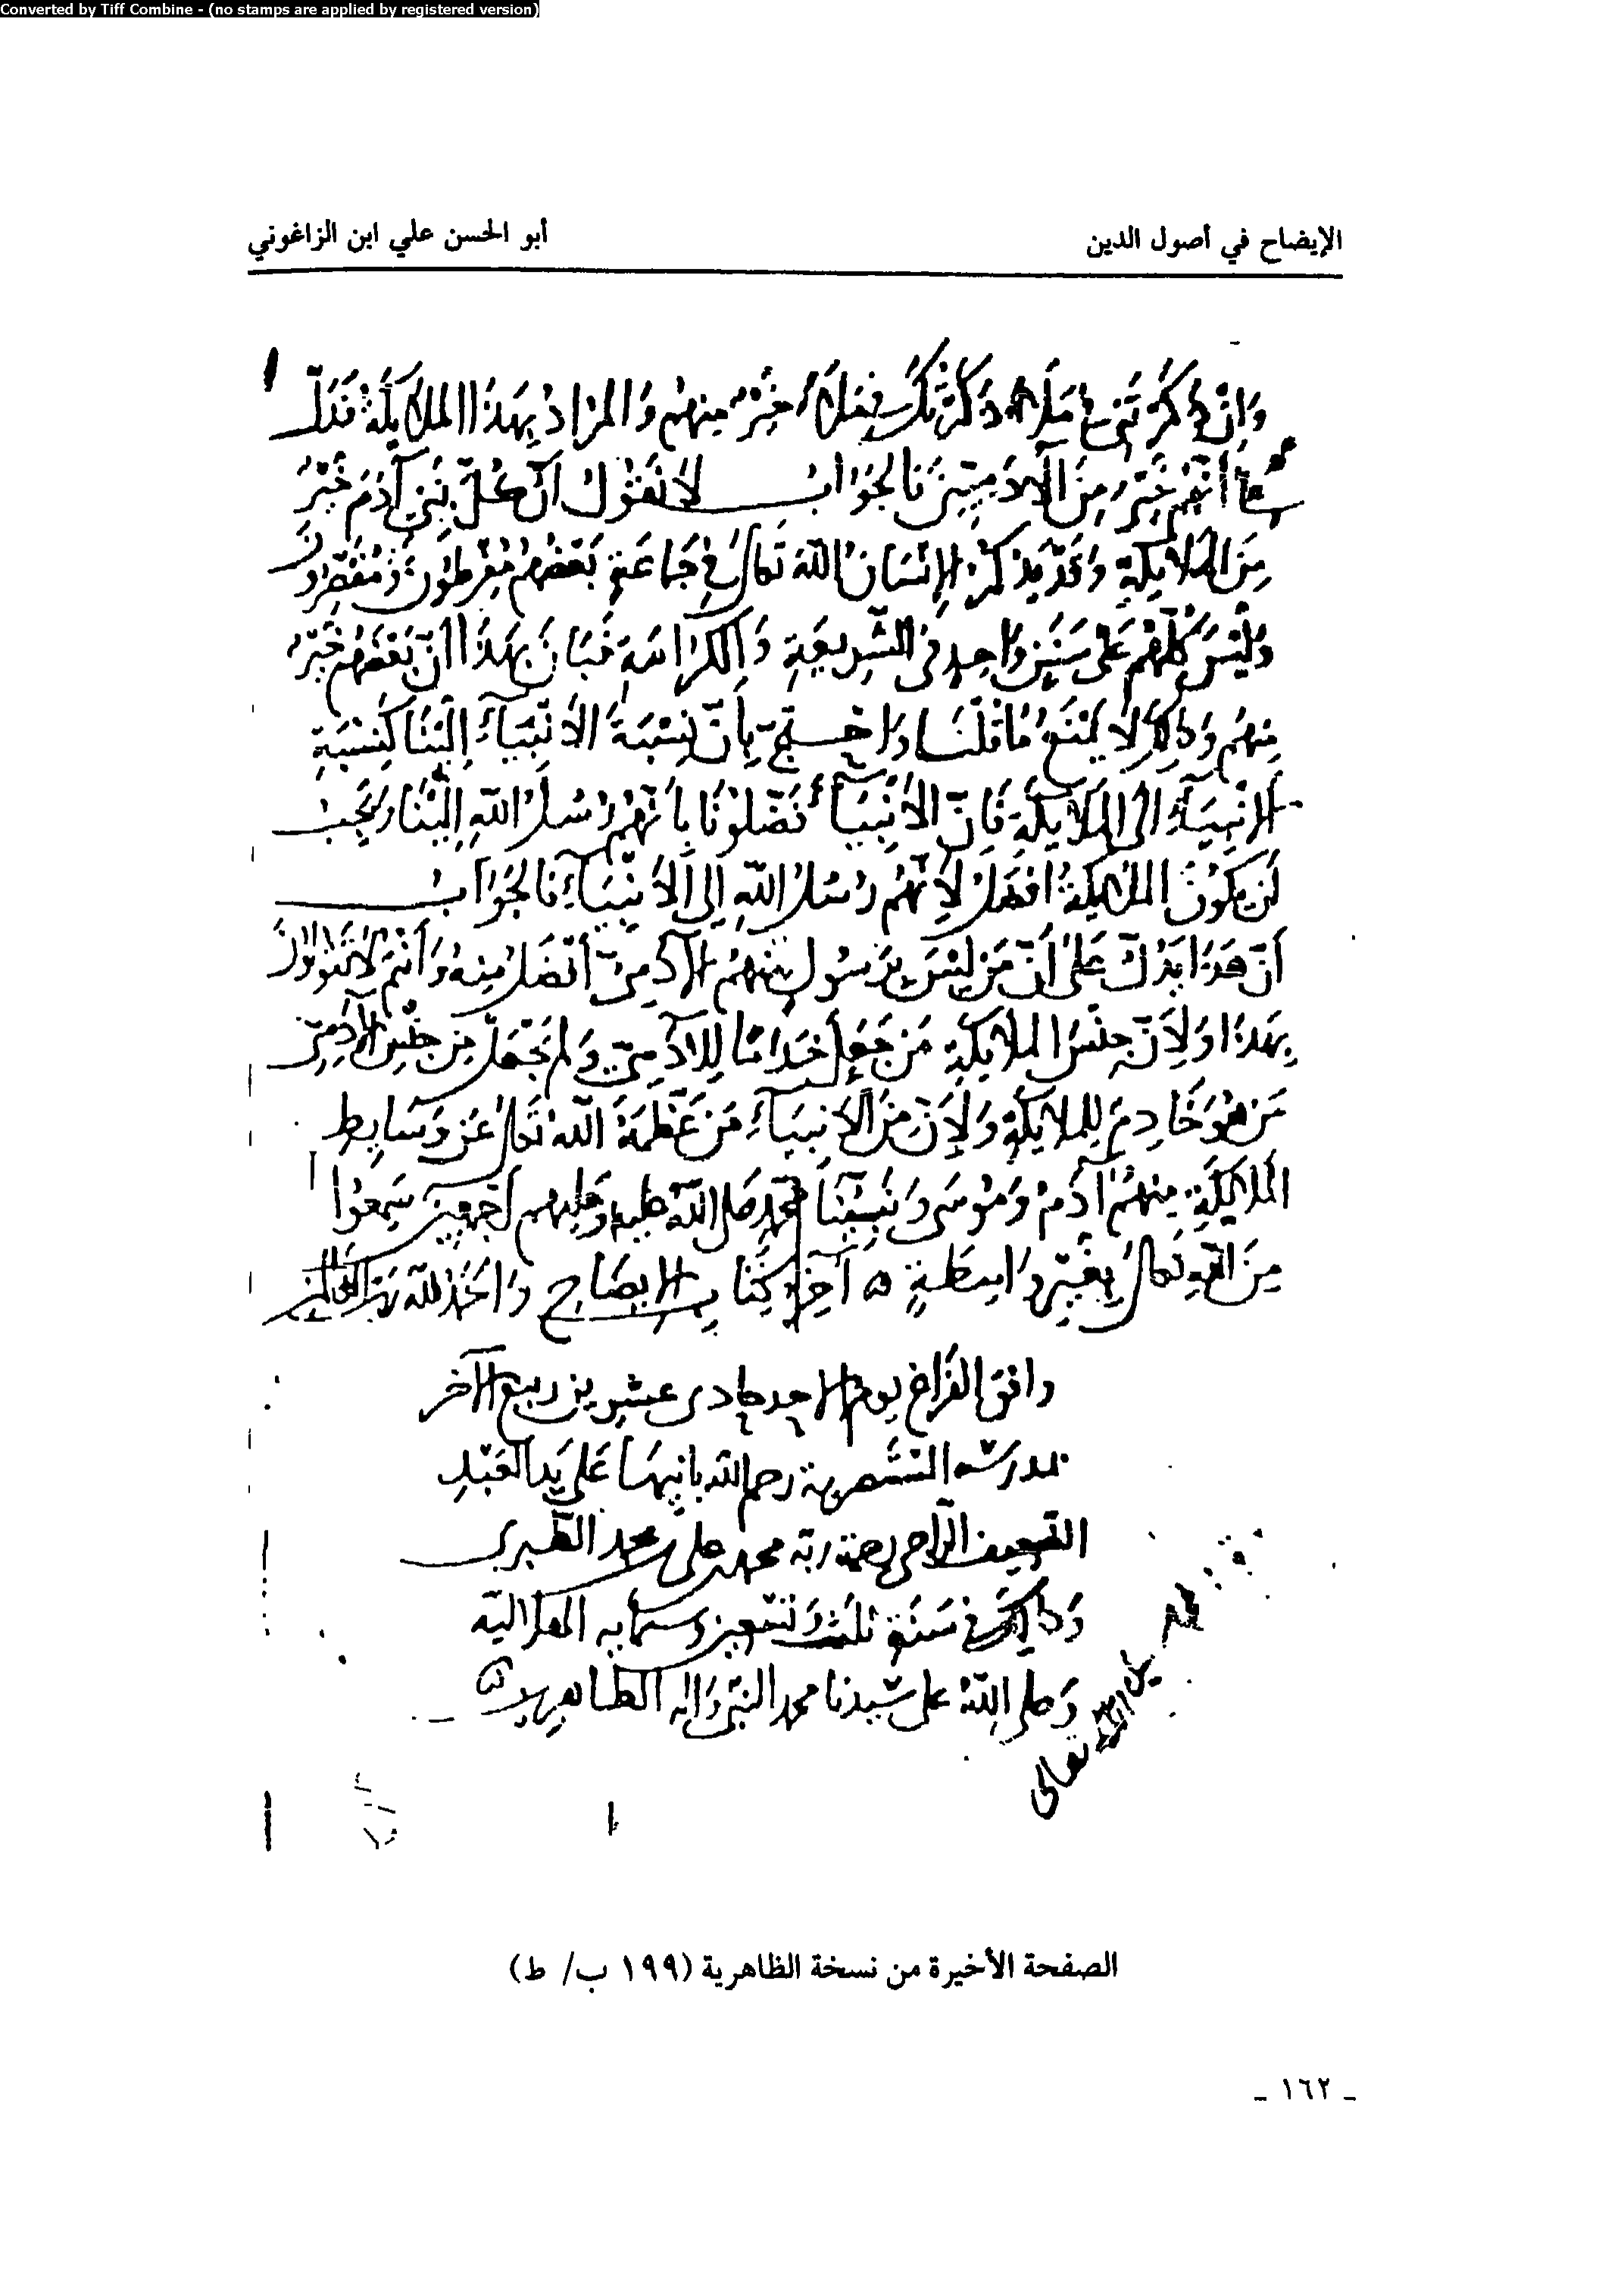 Converted by Tiff Combine - (no stamps are applied by registered version)
الإيضاح في أصول الدين
أبو الحسن علي ابن الزاغوني
وَإِنْ ذكرتني في ملإ ذكرتك في ملإ خَيْر منهم وَالمراد بِهَذَا الملائكة فَدَلَّ
أنهم خَيْر مِنَ الآدميين فالجَوَابُ لا نَقُولُ أن كلّ بَنِي آدَمَ خَيْرٌ
مِنَ الملائكةِ وَقد يذكر الإنسَان الله تعَالى في جماعَةٍ بَعْضهم مفرطون وَمُقَصِّرُونَ
وَلَيْسَ كلّهُم عَلى سَنَنٍ وَاحِدٍ في الشريعَةِ وَالكرَامَة فَبَانَ بِهَذَا أنّ بَعْضَهُم خَيْرٌ
مِنهُم وَذلك لا يمنَعُ مَا قلنَا وَاحتج بِأنّ نِسْبَةَ الأنبيَآء إلَيْنَا كَنِسْبَةِ
الانبيَآءِ إلى الملائكَةِ فإنّ الأنْبيَآءَ فَضَلُونَا بأنهم رسُلُ اللهِ إلَيْنَا وَيَجِبُ
أن يكونَ الملائكةُ افضَل لأنهُم رسُلُ اللهِ إلى الأنبيَآء فالجَوَابُ
أنّ هَذَا يَدُلّ عَلى أنّ مَن ليْسَ بِرَسُولٍ مِنهُم إلى الآدميّ أفضَل مِنهُ وَأنتم لا تقولونَ
بِهَذَا وَلِأنّ جنسَ الملائكةِ مَن جَعَلَ خدامًا لِلآدَميّ وَلم يَجْعَل مِن جنْسِ الآدميّ
مَن هُوَ خَادِمٌ لِلملائكةِ وَلأنّ مِنَ الأنبيَآءِ مَن عَظَّمَهُ الله تعَالى عَن وَسَايِط
الملائكَةِ مِنهُمْ آدَمُ وَمُوسَى وَنَبِيّنَا محمد صَلى الله عليه وَعليهم أجمَعِينَ سَمِعُوا
مِنَ الله تعَالى بِغَيْرِ وَاسِطَةٍ ه آخِر كِتَابِ الإيضَاحِ وَالحَمْدُ لله رَبّ العَالمين
وافق الفَرَاغ يوم الاحد حادى عشرين ربيع الآخر
بمدرسة المستنصرية رحم الله بانيهَا عَلى يَد العَبْدِ
الضعيف الرّاجى رحمة ربّه محمد بن على بن محمد الطبرى
وَذلِكَ في سَنَةِ ثلث وَتسْعِين وستمايه الهلاليّه
وَصَلى اللهُ على سَيّدنا محمد النبيّ وَاله الطاهِرين
تعالى
الصفحة الأخيرة من نسخة الظاهرية (١٩٩ ب/ ط)
ـ ١٦٢ ـ